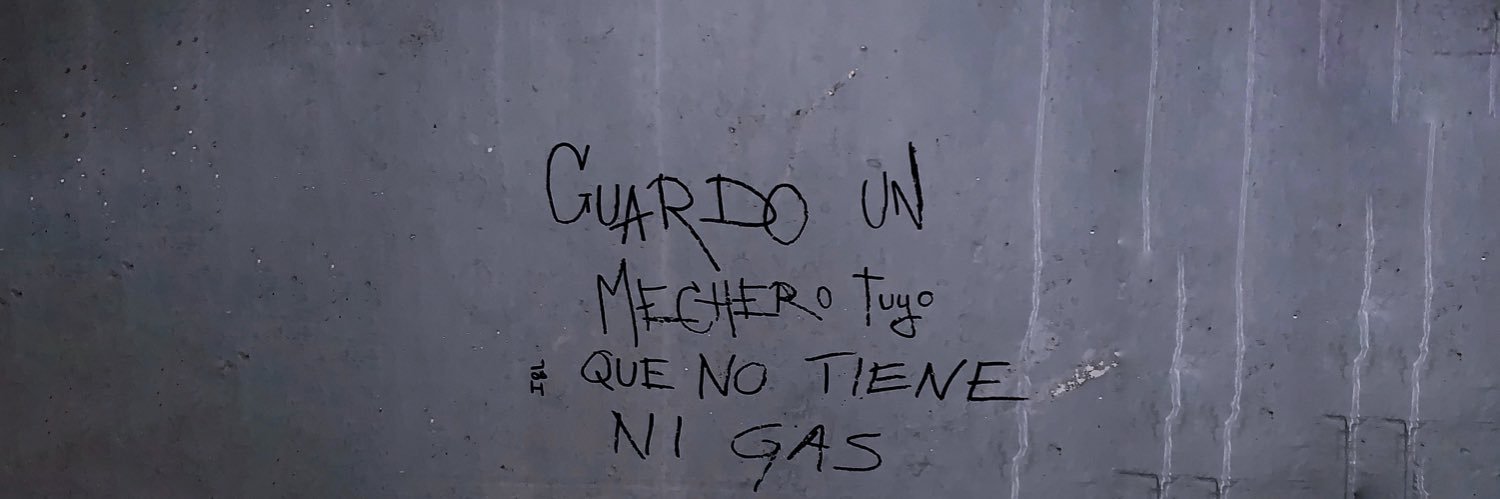 GUARDO UN
MECHERO Tuyo
QUE NO TIENE
NI GAS